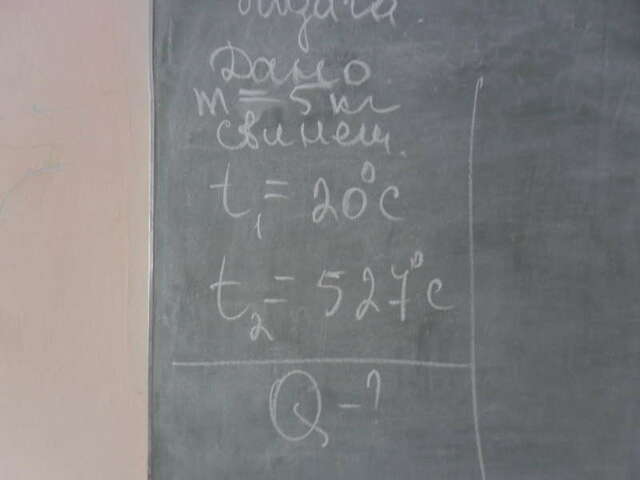 Задача.
Дано
m = 5 кг
свинец.
t₁ = 20°C
t₂ = 527°C
Q - ?